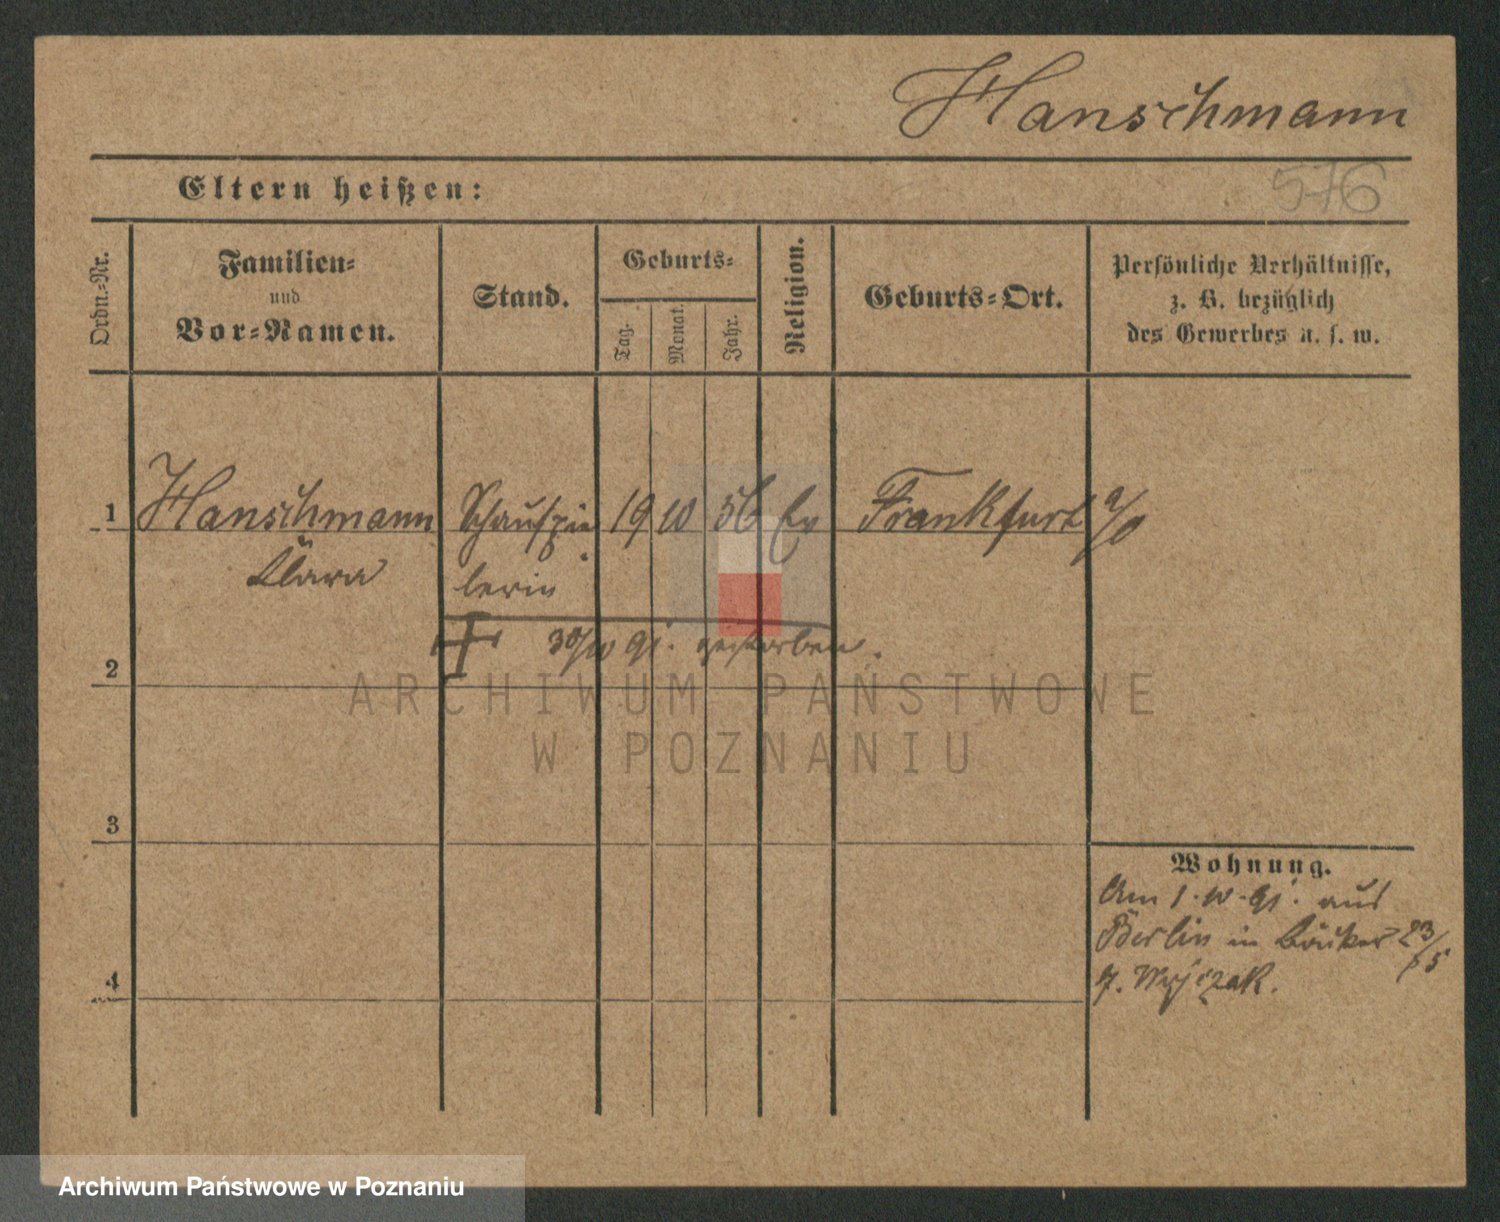 Hanschmann
Eltern heißen:
576
Ordn.-Nr.
Familien-
und
Vor-Namen.
Stand.
Geburts-
Tag.
Monat.
Jahr.
Religion.
Geburts-Ort.
Persönliche Verhältnisse,
z. B. bezüglich
des Gewerbes u. s. w.
1 Hanschmann Schauspie 19 10 56 Ev Frankfurt a/O
Klara lerin
30/10 91. gestorben.
2
ARCHIWUM PAŃSTWOWE
W POZNANIU
3
Wohnung.
Am 1. 10. 91. aus
Berlin in Bäcker 23
4
Archiwum Państwowe w Poznaniu